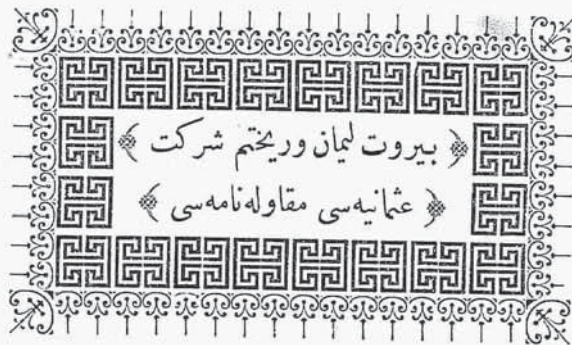 ﴿ بيروت ليمان وريختم شركت ﴾
﴿ عثمانیه‌سی مقاوله‌نامه‌سی ﴾